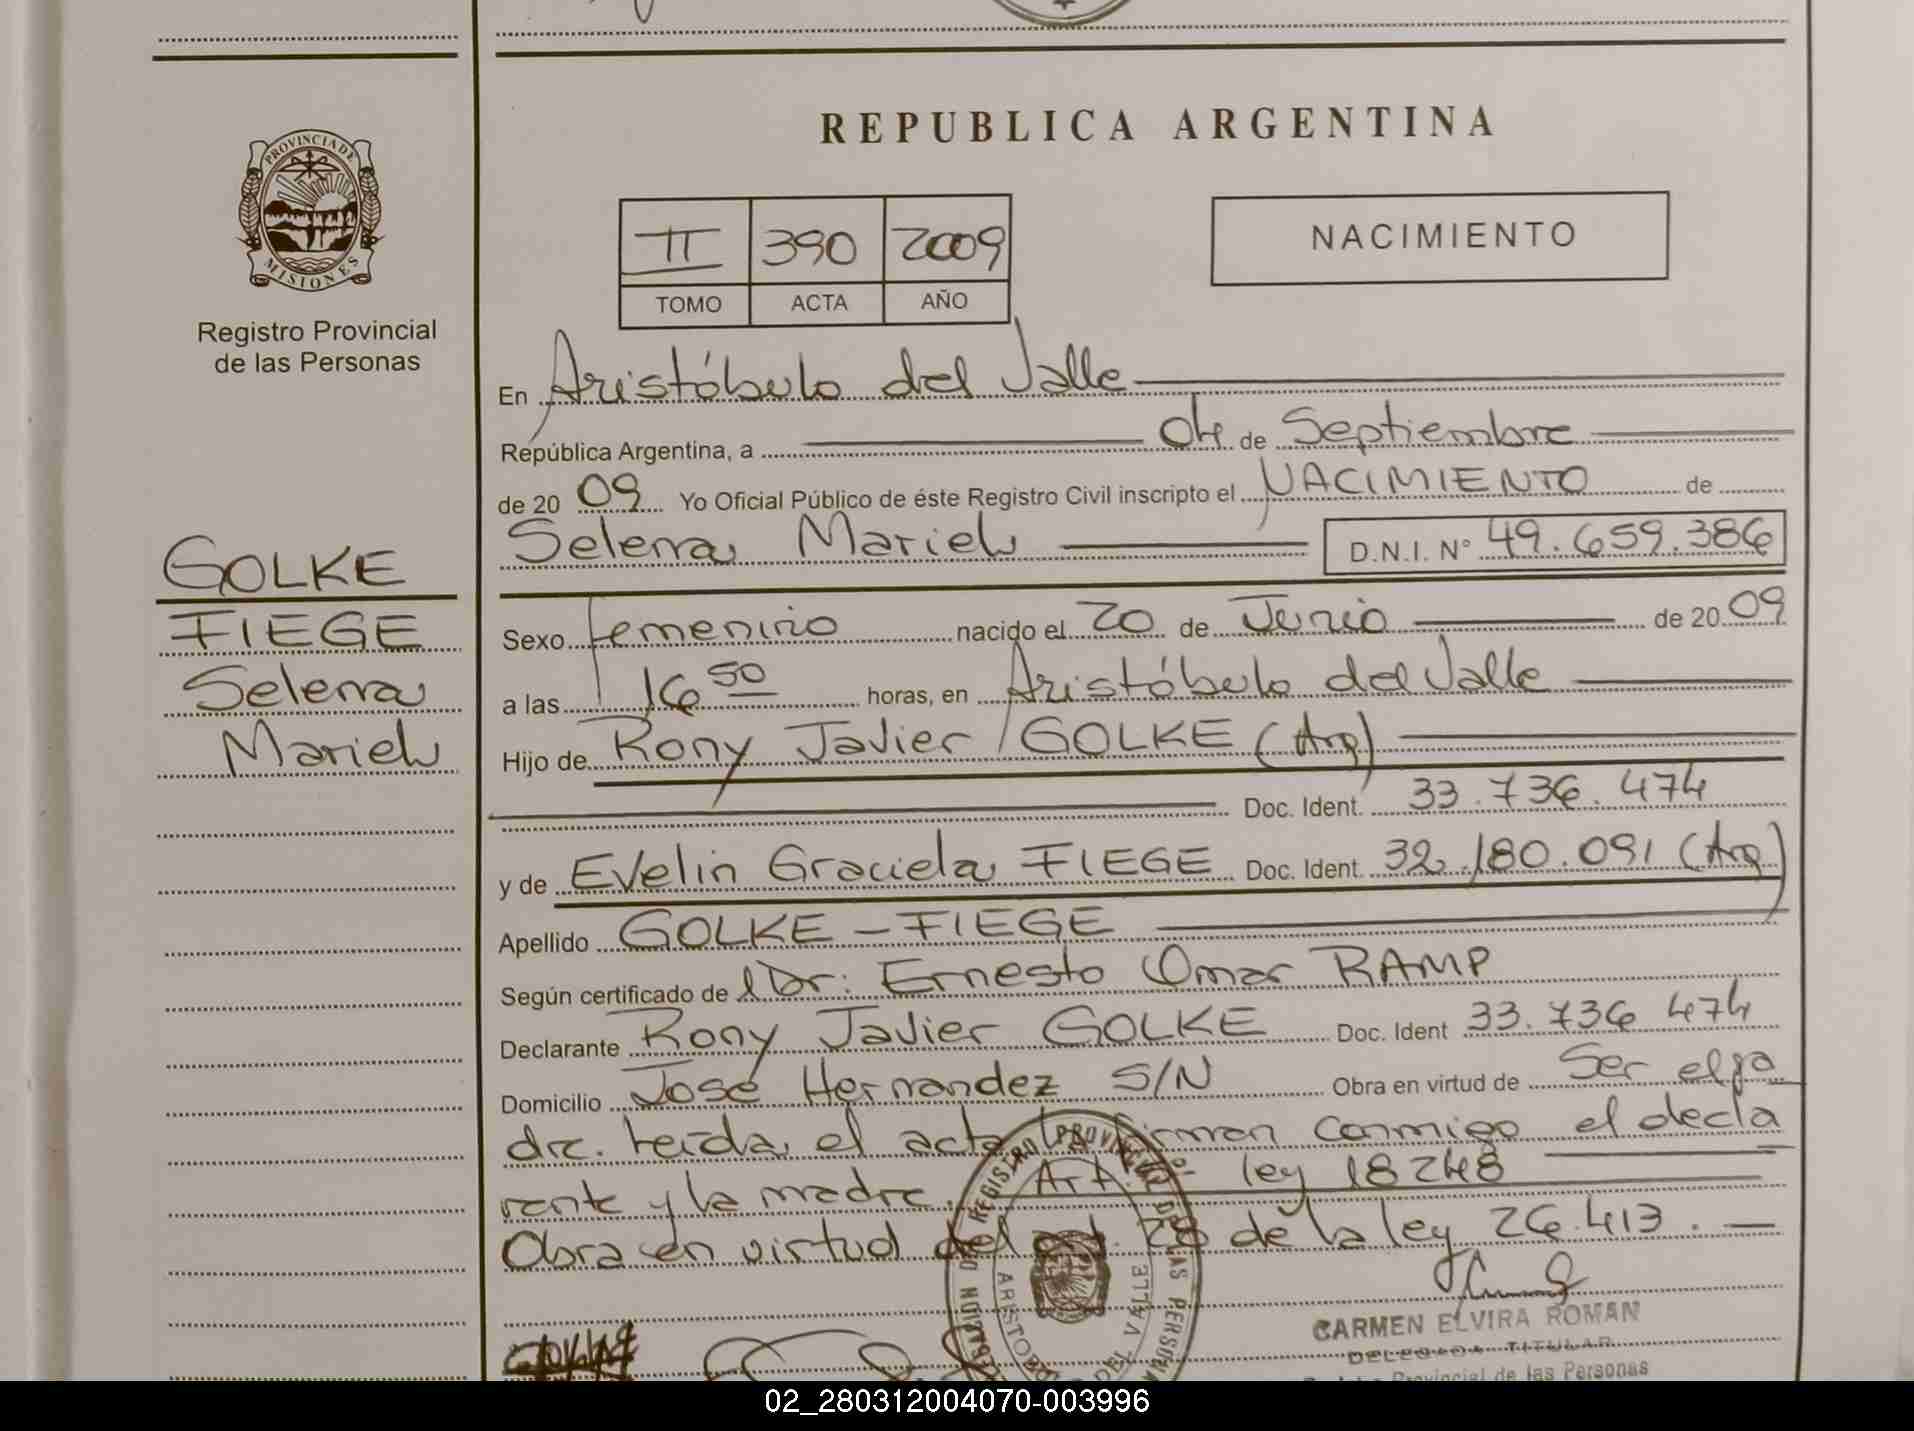 REPUBLICA ARGENTINA
PROVINCIA DE
MISIONES
Registro Provincial
de las Personas
II 390 2009
TOMO ACTA AÑO
NACIMIENTO
En Aristóbulo del Valle
República Argentina, a 04 de Septiembre
de 20 09 Yo Oficial Público de éste Registro Civil inscripto el NACIMIENTO de
Selena Mariel D.N.I. N° 49.659.386
GOLKE
FIEGE
Selena
Mariel
Sexo femenino nacido el 20 de Junio de 20 09
a las 16 50 horas, en Aristóbulo del Valle
Hijo de Rony Javier GOLKE (Arg)
Doc. Ident. 33.736.474
y de Evelin Graciela FIEGE Doc. Ident. 32.180.091 (Arg)
Apellido GOLKE - FIEGE
Según certificado de Dr: Ernesto Omar RAMP
Declarante Rony Javier GOLKE Doc. Ident 33.736 474
Domicilio José Hernandez S/N Obra en virtud de Ser el pa
dre. Leída el acta la firman conmigo el decla
rante y la madre. Art. ley 18248
Obra en virtud del art. 28 de la ley 26.413.
REGISTRO PROVINCIAL DE LAS PERSONAS
ARISTOBULO DEL VALLE
CARMEN ELVIRA ROMAN
DELEGADA TITULAR
Provincial de las Personas
02_280312004070-003996